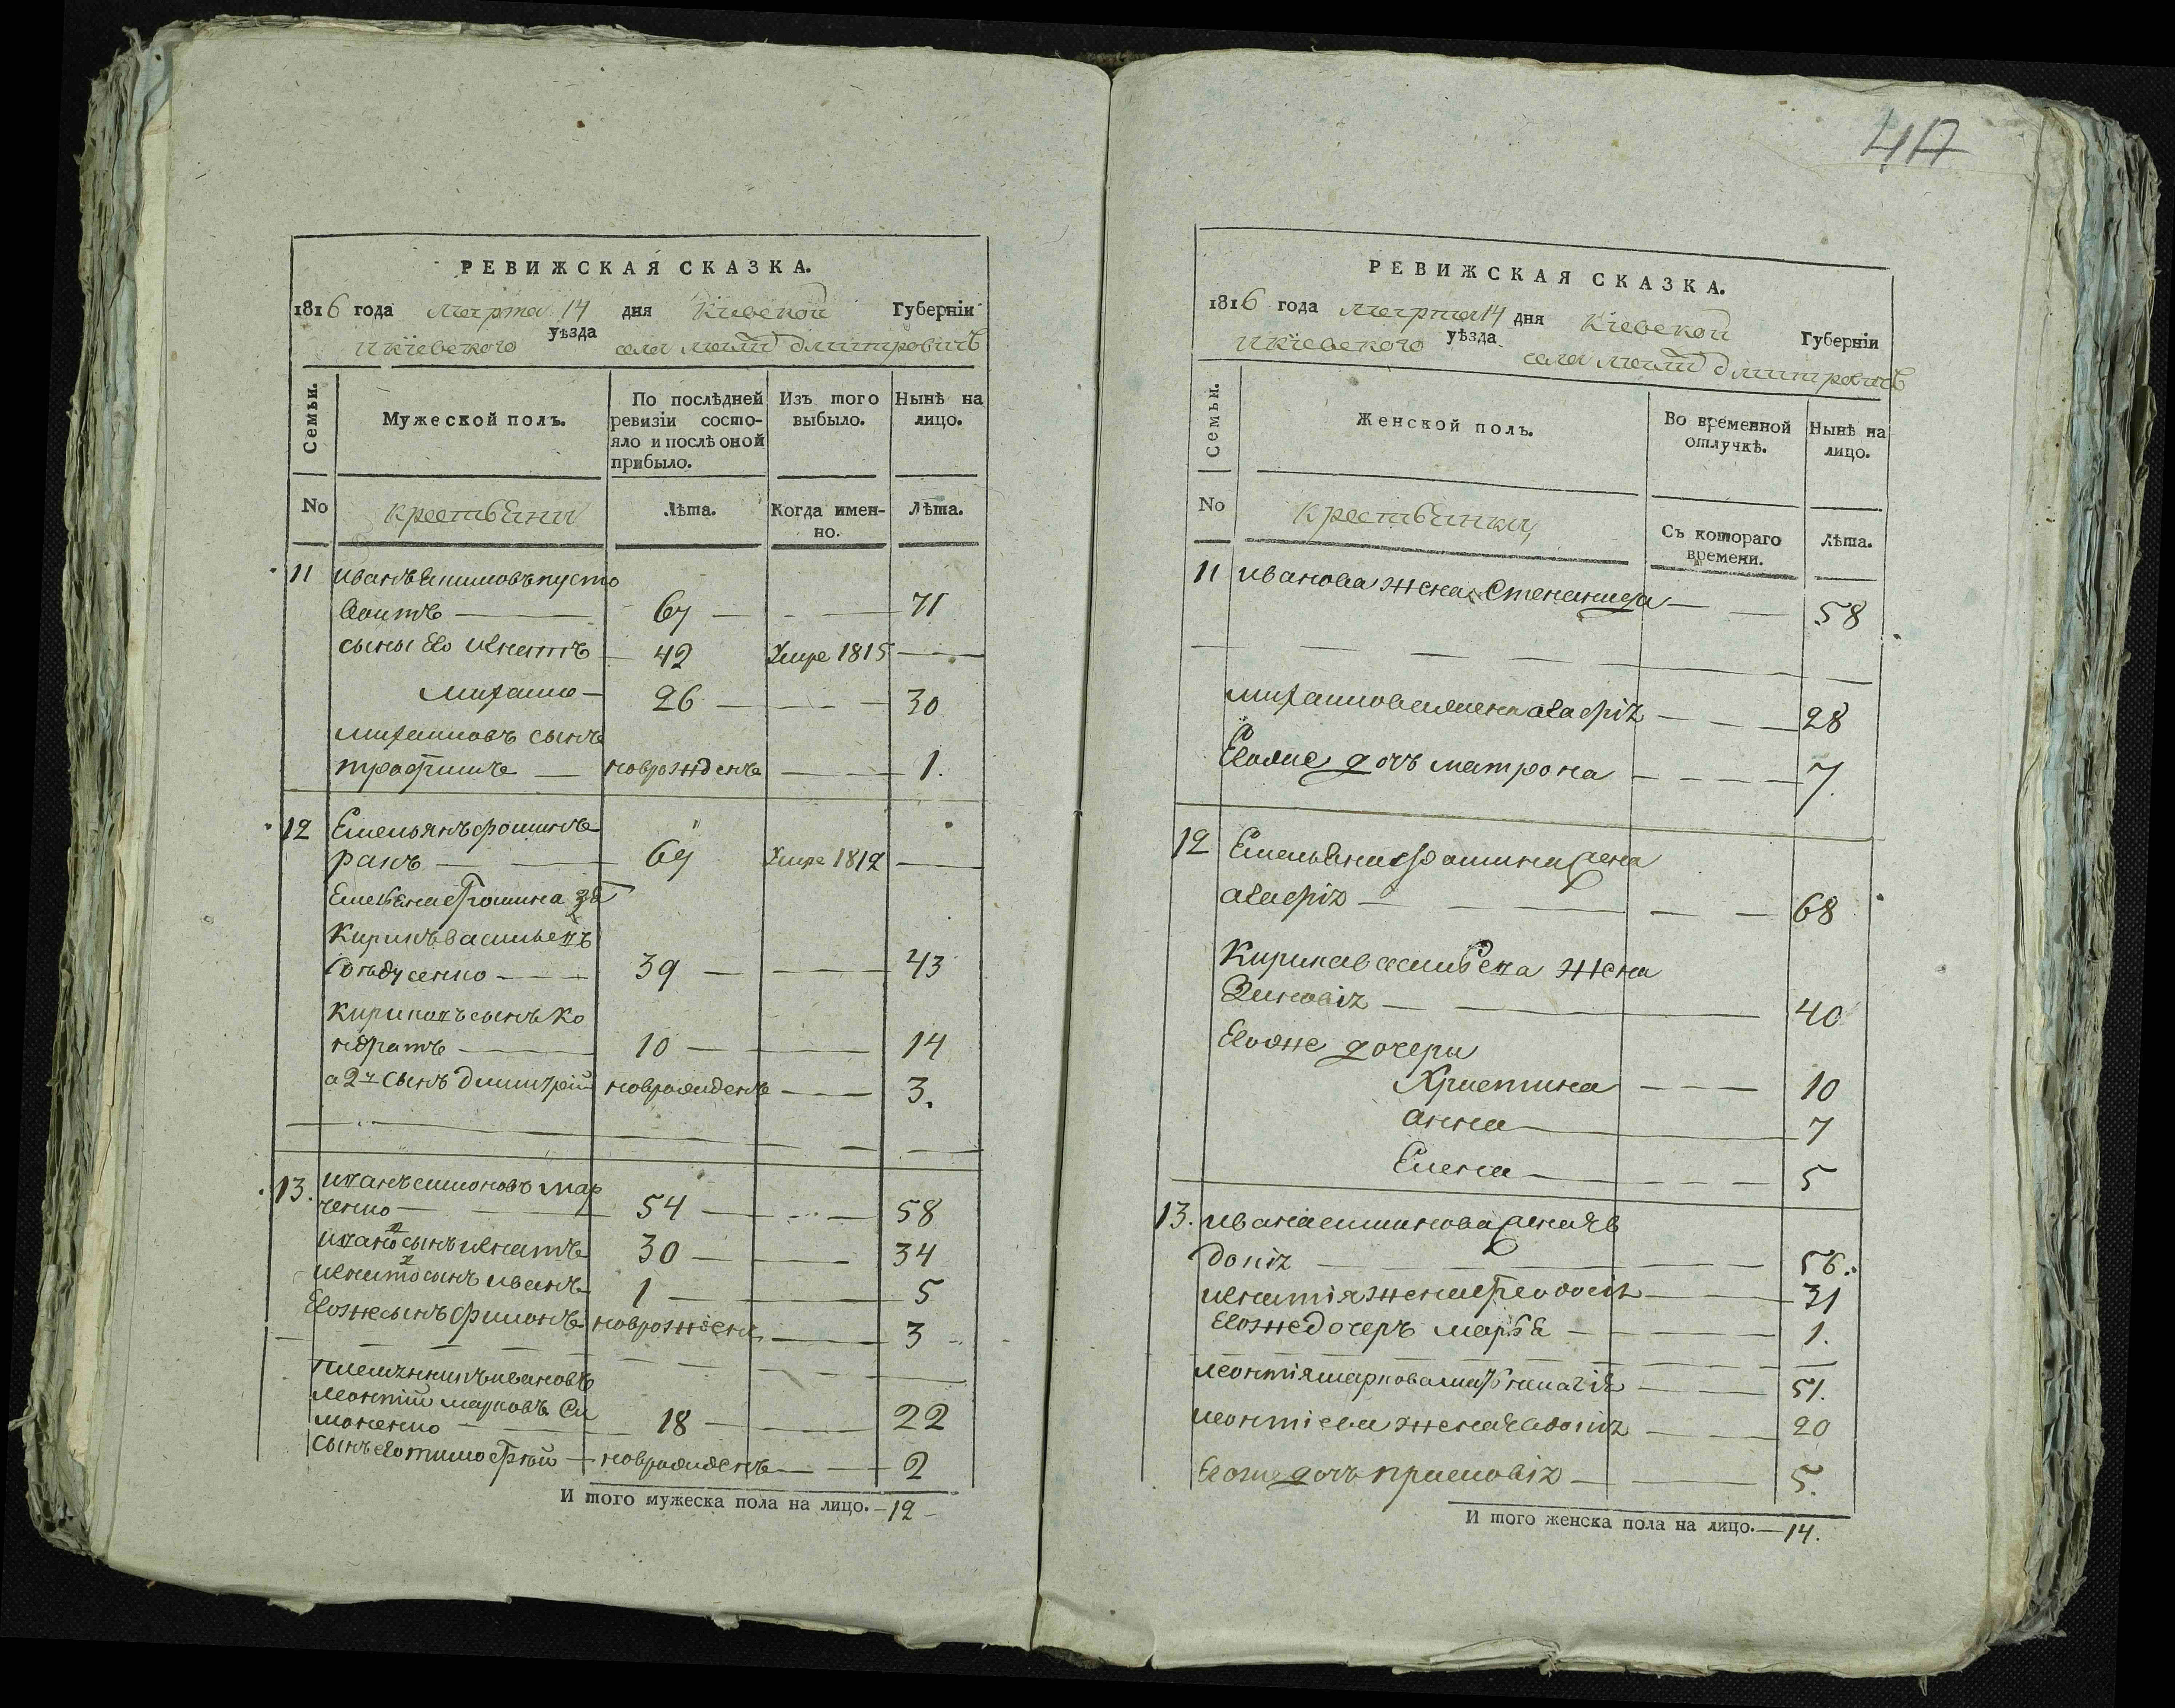 РЕВИЖСКАЯ СКАЗКА.
1816 года марта 14 дня Кіевской Губерніи
и кіевского уѣзда села малы дмитровичъ
Семьи.
Мужеской полъ.
По послѣдней ревизіи состо-
яло и послѣ оной прибыло.
Изъ того выбыло.
Нынѣ на лицо.
No
крестьяни
Лѣта.
Когда имен-
но.
Лѣта.
11 иванъ пусто
воитъ 67 71
сыны его игнатъ 42 Умре 1815
михаило 26 30
михаиловъ сынъ
трофимъ новрожденъ 1.
12 Емельянъ фоминъ
ранъ 69 Умре 1812
Емельяна фомина
Кирикъ васильевъ
39 43
Кириковъ сынъ ко
ндратъ 10 14
а 2й сынъ димитрій новрожденъ 3.
13. иванъ симоновъ мар
ченко 54 58
ивановъ сынъ игнатъ 30 34
игнатовъ сынъ иванъ 1 5
Егожъ сынъ филонъ новрожденъ 3
племянникъ ивановъ
леонтій марковъ си
моненко 18 22
сынъ его тимофѣй новрожденъ 2
И того мужеска пола на лицо. 12
47
РЕВИЖСКАЯ СКАЗКА.
1816 года марта 14 дня Кіевской Губерніи
и кіевского уѣзда села малы дмитровичъ
Семьи.
Женской полъ.
Во временной
отлучкѣ.
Нынѣ на
лицо.
No
Крестьянки
Съ котораго
времени.
Лѣта.
11 иванова жена Степанида 58
михаилова жена агафія 28
Егоже дочь матрона 7.
12 Емельяна фомина жена
агафія 68
Кирика василева жена
Зиновія 40
Егоже дочери
Христина 10
анна 7
Елена 5
13. ивана симонова жена яв
докія 56.
игнатія жена феодосія 31
Егоже дочеръ марья 1.
леонтія маркова мать 51.
леонтіева жена явдокія 20
Егоже дочь 5.
И того женска пола на лицо. 14.